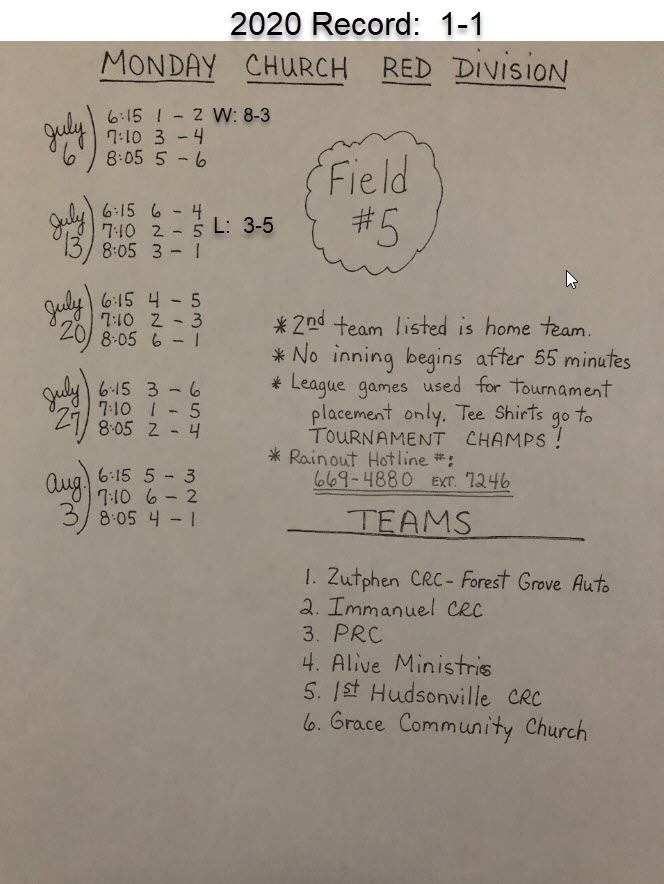 2020 Record: 1-1
MONDAY CHURCH RED DIVISION
July 6) 6:15 1 - 2 W: 8-3
7:10 3 - 4
8:05 5 - 6
July 13) 6:15 6 - 4
7:10 2 - 5 L: 3-5
8:05 3 - 1
July 20) 6:15 4 - 5
7:10 2 - 3
8:05 6 - 1
July 27) 6:15 3 - 6
7:10 1 - 5
8:05 2 - 4
Aug. 3) 6:15 5 - 3
7:10 6 - 2
8:05 4 - 1
Field
#5
* 2nd team listed is home team.
* No inning begins after 55 minutes
* League games used for Tournament
placement only. Tee Shirts go to
TOURNAMENT CHAMPS!
* Rainout Hotline #:
669-4880 EXT. 7246
TEAMS
1. Zutphen CRC - Forest Grove Auto
2. Immanuel CRC
3. PRC
4. Alive Ministris
5. 1st Hudsonville CRC
6. Grace Community Church